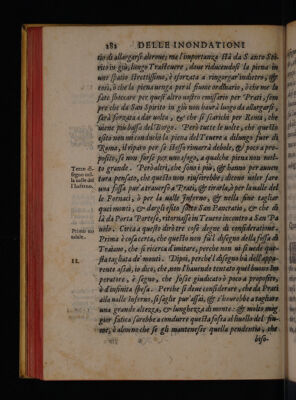 282 DELLE INONDATIONI
tio di allargarsi altrove; ma l'importanza stà da S anto Spi
rito in giù, lungo Trastevere, doue riducendosi la piena in
uno spatio strettissimo, è sforzata a ringurgar'indietro, &
così, ò che la piena venga per il fiume ordinario, ò che me la
fate sboccare per quest'altro vostro emissario per Prati, sem
pre che da San Spirito in giù non haurà luogo da allargarsi,
sarà forzata a dar volta, & che si scarichi per Roma, che
viene più bassa del Borgo. Però tutte le volte, che questo
esito non mi conduchi la piena del Teuere a dilungo fuor di
Roma, il riparo per se stesso rimarrà debole, & poco a pro-
posito, se non forse per uno sfogo, a qualche piena non mol-
to grande. Però altri, che sono iti più, & hanno per auuen
tura pensato, che questo non riuscirebbe; dicono voler fare
una fossa pur' a trauerso a' Prati, & tirarla, ò per la valle del
le Fornaci, ò per la valle Inferno, & nella fine tagliar
quei monti, & dargli esito sotto San Pancratio, & che di
là da Porta Portese, ritornasse in Teuere incontro a San Pa
uolo. Circa a questo dirò tre cose degne di consideratione.
Prima è cosa certa, che questo non fù il disegno della fossa di
Traiano, che si ricerca d'imitare, perche non mi pò fare que-
sta tagliata de' monti. Dipoi, perche'l disegno hà dell'appa-
rente assai, io dico, che, non l'hauendo tentato quel buono Im
peratore, è segno, che fosse giudicato ò poco a proposito,
ò d'infinita spesa. Perche si deue considerare, che da i Prati
alla valle Inferno, si saglie pur'assai, & s'hauerebbe a tagliare
una grande altezza, & lunghezza di monte: & molto mag
gior fatica sarebbe a condurre questa fossa al liuello del fiu-
me, ò almeno che se gli mantenesse quella pendentia, che
biso-
Terzo di-
segno nel-
la valle del
l'Inferno.
Primo no
tabile.
II.